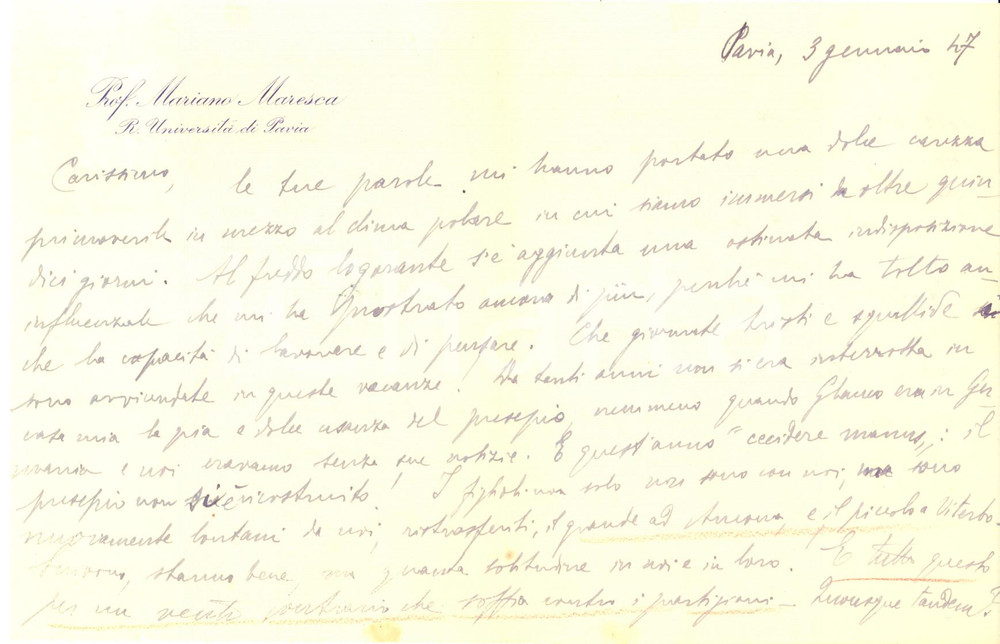 Pavia, 3 gennaio 47
Prof. Mariano Maresca
R. Università di Pavia
Carissimo, le tue parole mi hanno portato una dolce carezza
primaverile in mezzo al clima polare in cui siamo immersi da oltre quin
dici giorni. Al freddo logorante s'è aggiunta una ostinata indisposizione
influenzale che mi ha prostrato ancora di più, perché mi ha tolto an
che la capacità di lavorare e di pensare. Che giornate tristi e squallide
sono avvicendate in queste vacanze! Da tanti anni non si era interrotta in
casa mia la pia e dolce usanza del presepio, nemmeno quando Glauco era in Ger
mania e noi eravamo senza sue notizie. E quest'anno "cecidere manus„: il
presepio non si è ricostruito! I figliuoli non solo non sono con noi, ma sono
nuovamente lontani da noi, ritrasferiti, il grande ad Ancona e il piccolo a Viterbo.
stanno bene, ma quanta solitudine in noi e in loro. E tutto questo
per un vento contrario che soffia contro i partigiani - Quousque tandem?